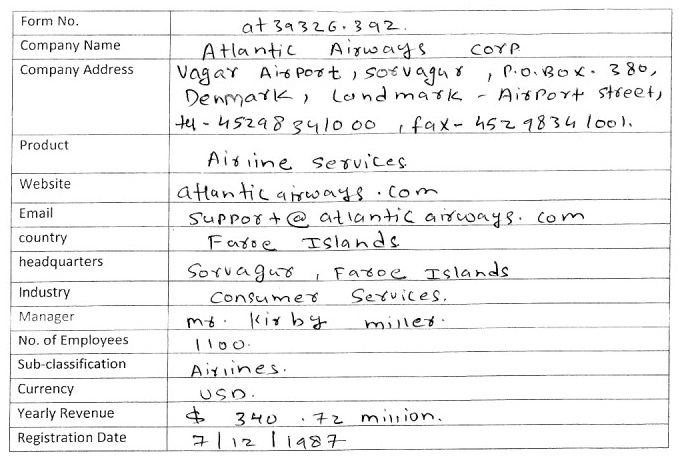 Form No. at39326.392.
Company Name Atlantic Airways corp
Company Address Vagar Airport, sorvagur, P.O.Box. 380,
Denmark, Landmark - Airport street,
tel - 45298341000, fax - 45298341001.
Product Airline services
Website atlanticairways.com
Email support@atlanticairways.com
country Faroe Islands
headquarters Sorvagur, Faroe Islands
Industry Consumer Services.
Manager mr. Kirby miller.
No. of Employees 1100.
Sub-classification Airlines.
Currency USD.
Yearly Revenue $ 340.72 million.
Registration Date 7/12/1987